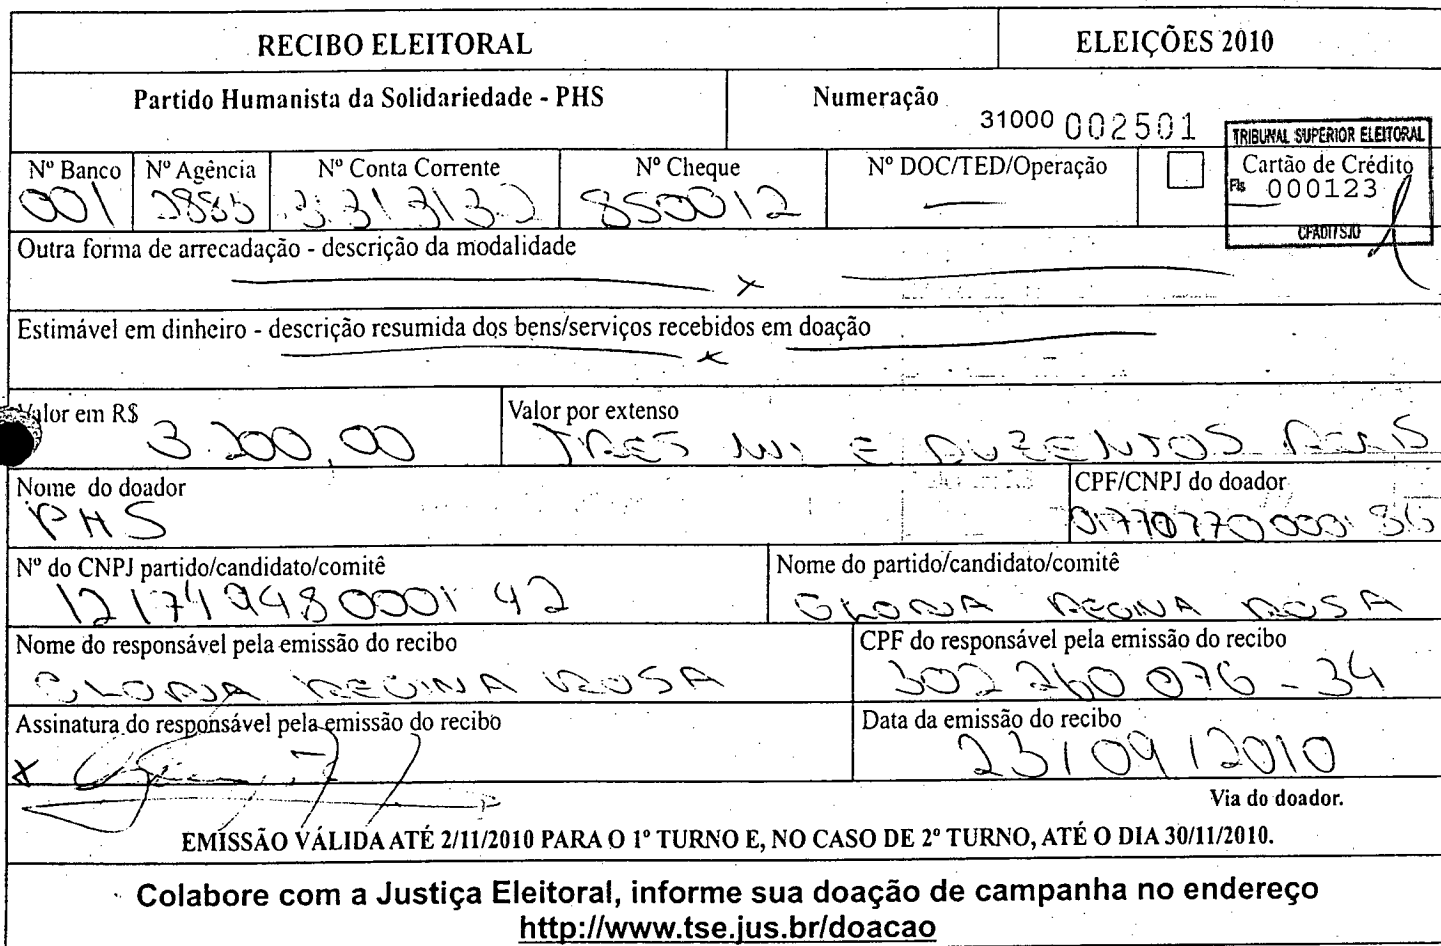 RECIBO ELEITORAL
ELEIÇÕES 2010
Partido Humanista da Solidariedade - PHS
Numeração
31000 002501
TRIBUNAL SUPERIOR ELEITORAL
Nº Banco
Nº Agência
Nº Conta Corrente
Nº Cheque
Nº DOC/TED/Operação
Cartão de Crédito
Fls 000123
001
850012
CPADI/SJD
Outra forma de arrecadação - descrição da modalidade
x
Estimável em dinheiro - descrição resumida dos bens/serviços recebidos em doação
x
Valor em R$
3.200,00
Valor por extenso
TRES MI E DUZENTOS REAIS
Nome do doador
PHS
CPF/CNPJ do doador
Nº do CNPJ partido/candidato/comitê
12174948000142
Nome do partido/candidato/comitê
GLORIA REGINA ROSA
Nome do responsável pela emissão do recibo
GLORIA REGINA ROSA
CPF do responsável pela emissão do recibo
302 260 076-34
Assinatura do responsável pela emissão do recibo
x
Data da emissão do recibo
23/09/2010
Via do doador.
EMISSÃO VÁLIDA ATÉ 2/11/2010 PARA O 1º TURNO E, NO CASO DE 2º TURNO, ATÉ O DIA 30/11/2010.
Colabore com a Justiça Eleitoral, informe sua doação de campanha no endereço
http://www.tse.jus.br/doacao